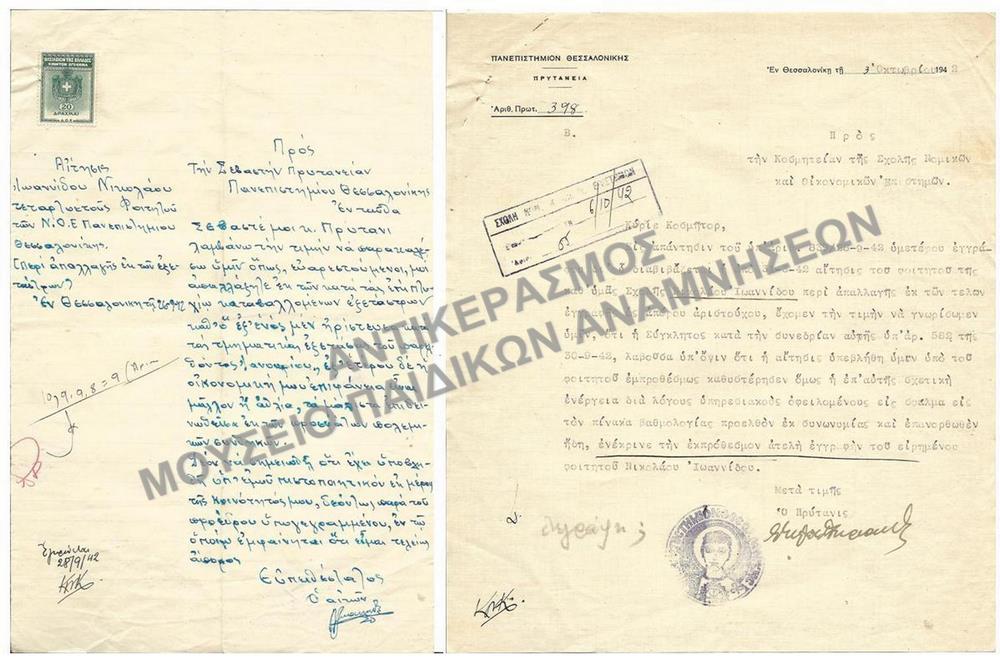 ΒΑΣΙΛΕΙΟΝ ΤΗΣ ΕΛΛΑΔΟΣ
20
ΔΡΑΧΜΑΙ
Αἴτησις
Ἰωαννίδου Νικολάου
τεταρτοετοῦς Φοιτητοῦ
τῶν Ν.Ο.Ε Πανεπιστημίου
Θεσσαλονίκης.
Περί ἀπαλλαγῆς ἐκ τῶν ἐξετάστρων
Ἐν Θεσσαλονίκῃ τῇ
10,9,9,8 = 9
Ἐγκρίνεται
28/9/42
Πρός
Τήν Σεβαστήν Πρυτανείαν
Πανεπιστημίου Θεσσαλονίκης
Ἐνταῦθα
Σεβαστέ μοι κ. Πρύτανι
Λαμβάνω τήν τιμήν νά παρακαλέ
σω ὑμᾶς ὅπως, εὐαρεστούμενοι, μοι
ἀπαλλάξητε ἐκ τῶν κατά τάς ἐπί πτυ
χίῳ καταβαλλομένων ἐξετάστρων
καθ' ὅ ἐξ ἑνός μέν ἠρίστευσα κατά
τάς τμηματικάς ἐξετάσεις τοῦ παρελ
θόντος Ἰανουαρίου, ἐξ ἑτέρου δέ ἡ
οἰκονομική μου ἐπιφάνεια εἶναι
μᾶλλον ἡ ἀθλία,
συνθηκῶν.
Δέον νά σημειωθῇ ὅτι ἔχει ὑποβλη
θῇ ὑπ' ἐμοῦ πιστοποιητικόν ἐκ μέρους
τῆς Κοινότητός μου, δεόντως παρά τοῦ
προέδρου ὑπογεγραμμένον, ἐν τῷ
ὁποίῳ ἐμφαίνηται ὅτι εἶμαι τελείως
ἄπορος
Εὐπειθέστατος
Ὁ αἰτῶν
ΠΑΝΕΠΙΣΤΗΜΙΟΝ ΘΕΣΣΑΛΟΝΙΚΗΣ
ΠΡΥΤΑΝΕΙΑ
Ἀριθ. Πρωτ. 398
Β.
Ἐν Θεσσαλονίκῃ τῇ 3 Ὀκτωβρίου 1942
Πρὸς
τὴν Κοσμητείαν τῆς Σχολῆς Νομικῶν
καὶ Οἰκονομικῶν Ἐπιστημῶν.
ΣΧΟΛΗ
6/10/42
Κύριε Κοσμῆτορ,
Εἰς ἀπάντησιν τοῦ ὑπ'ἀριθ. ὑμετέρου ἐγγρά-
διαβιβάζεται ἡ αἴτησις τοῦ φοιτητοῦ τῆς
καθ' ὑμᾶς Σχολῆς Νικολάου Ἰωαννίδου περὶ ἀπαλλαγῆς ἐκ τῶν τελων
ἐγγραφῆς ὡς ἀπόρου ἀριστούχου, ἔχομεν τὴν τιμὴν νὰ γνωρίσωμεν
ὑμῖν, ὅτι ἡ Σύγκλητος κατὰ τὴν συνεδρίαν αὐτῆς ὑπ'ἀρ. 582 τῆς
30-9-42, λαβοῦσα ὑπ'ὄψιν ὅτι ἡ αἴτησις ὑπεβλήθη ὑμῖν ὑπὸ τοῦ
φοιτητοῦ ἐμπροθέσμως καθυστέρησεν ὅμως ἡ ἐπ'αὐτῆς σχετικὴ
ἐνέργεια διὰ λόγους ὑπηρεσιακοὺς ὀφειλομένους εἰς σφάλμα εἰς
τὸν πίνακα βαθμολογίας προελθὸν ἐκ συνωνομίας καὶ ἐπανορθωθὲν
ἤδη, ἐνέκρινε τὴν ἐκπρόθεσμον ἀτελῆ ἐγγραφὴν τοῦ εἰρημένου
φοιτητοῦ Νικολάου Ἰωαννίδου.
Μετὰ τιμῆς
Ὁ Πρύτανις
ΑΝΤΙΚΕΡΑΣΜΟΣ
ΜΟΥΣΕΙΟ ΠΑΙΔΙΚΩΝ ΑΝΑΜΝΗΣΕΩΝ